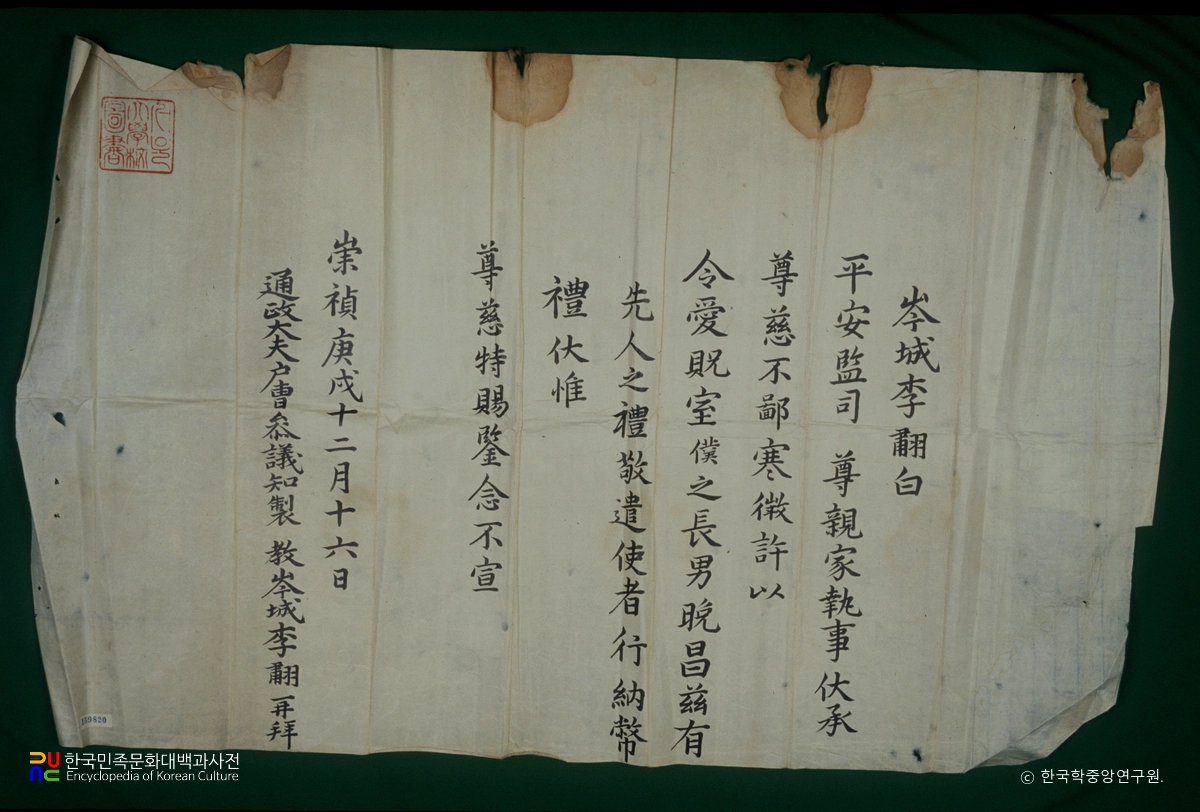 岑城李翻白
平安監司 尊親家執事伏承
尊慈不鄙寒微許以
令愛貺室僕之長男晩昌茲有
先人之禮敬遣使者行納幣
禮伏惟
尊慈特賜鑒念不宣
崇禎庚戌十二月十六日
通政大夫戶曹參議知製 教岑城李翻再拜
圖書
259820
한국민족문화대백과사전
Encyclopedia of Korean Culture
ⓒ 한국학중앙연구원.